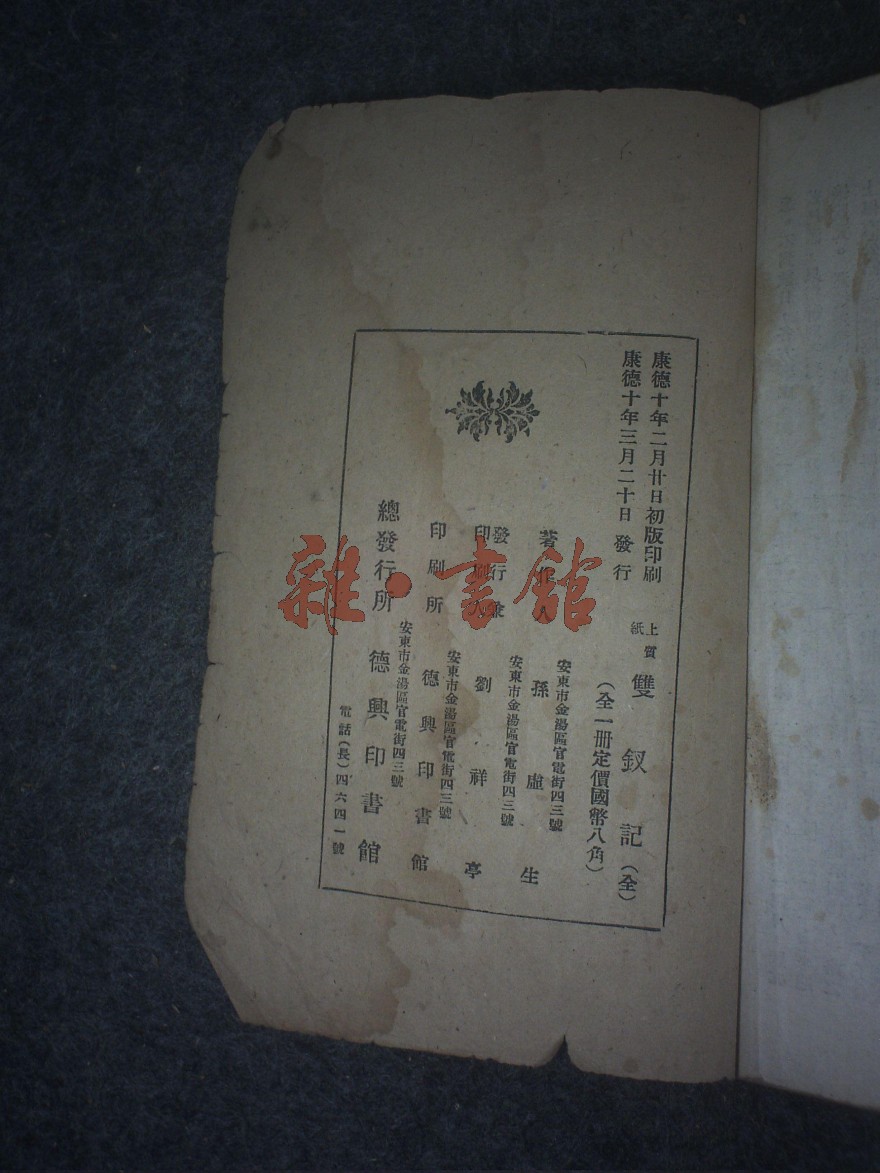 康德十年二月廿日初版印刷
康德十年三月二十日發行
上質紙 雙釵記(全)
(全一冊定價國幣八角)
安東市金湯區官電街四三號
著作人 孫虛生
安東市金湯區官電街四三號
發行兼印刷人 劉祥亭
安東市金湯區官電街四三號
印刷所 德興印書館
安東市金湯區官電街四三號
總發行所 德興印書館
電話(長)四六四一號
雜·書館